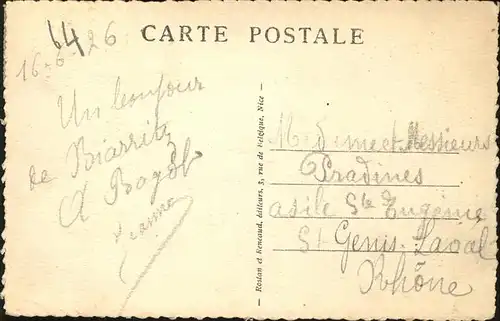 64
16-6-26
CARTE POSTALE
Un bonjour
de Biarritz
A Bogdt
Jeanne
Rostan et Rencaud, éditeurs, 3, rue de Belgique, Nice
Mesdames et Messieurs
Pradines
asile Ste Eugénie
St Genis-Laval
Rhône